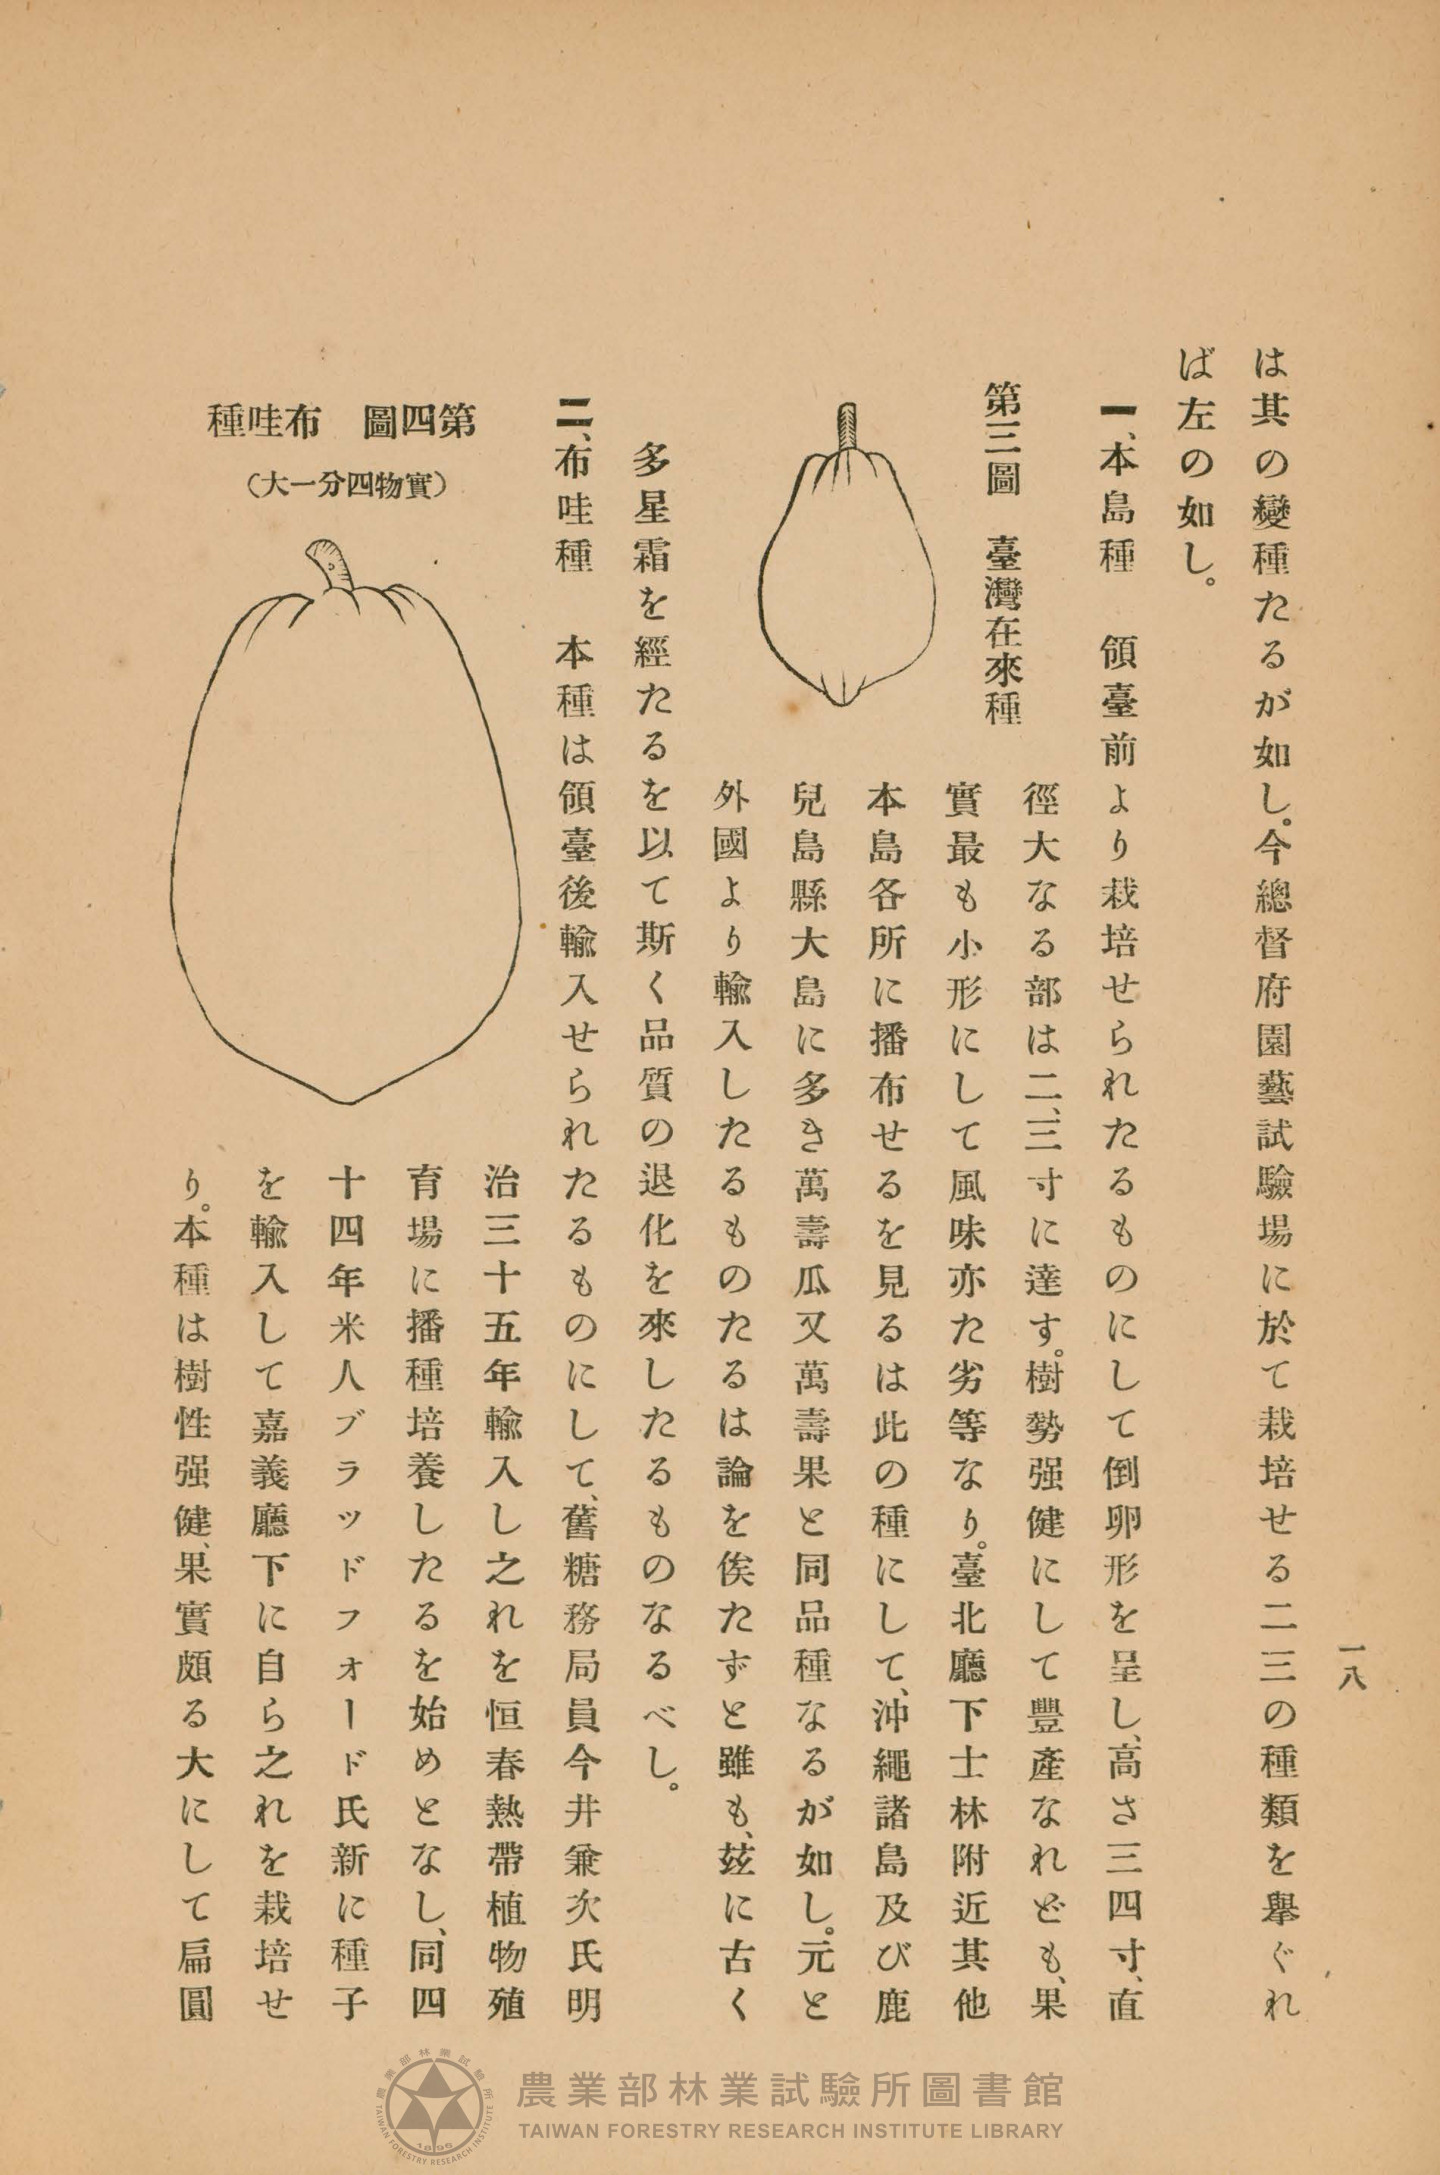 は其の變種たるが如し。今總督府園藝試驗場に於て栽培せる二三の種類を擧ぐれ
ば左の如し。
一、本島種　領臺前より栽培せられたるものにして倒卵形を呈し、高さ三四寸、直
第三圖　臺灣在來種
徑大なる部は二、三寸に達す。樹勢强健にして豐產なれども、果
實最も小形にして風味亦た劣等なり。臺北廳下士林附近其他
本島各所に播布せるを見るは此の種にして、沖繩諸島及び鹿
兒島縣大島に多き萬壽瓜又萬壽果と同品種なるが如し。元と
外國より輸入したるものたるは論を俟たずと雖も、玆に古く
多星霜を經たるを以て斯く品質の退化を來したるものなるべし。
二、布哇種　本種は領臺後輸入せられたるものにして、舊糖務局員今井兼次氏明
第四圖　布哇種
（實物四分一大）
治三十五年輸入し之れを恒春熱帶植物殖
育場に播種培養したるを始めとなし、同四
十四年米人ブラッドフォード氏新に種子
を輸入して嘉義廳下に自ら之れを栽培せ
り。本種は樹性强健、果實頗る大にして扁圓
一八
農業部林業試驗所圖書館
TAIWAN FORESTRY RESEARCH INSTITUTE LIBRARY
農業部林業試驗所
TAIWAN FORESTRY RESEARCH INSTITUTE
1896